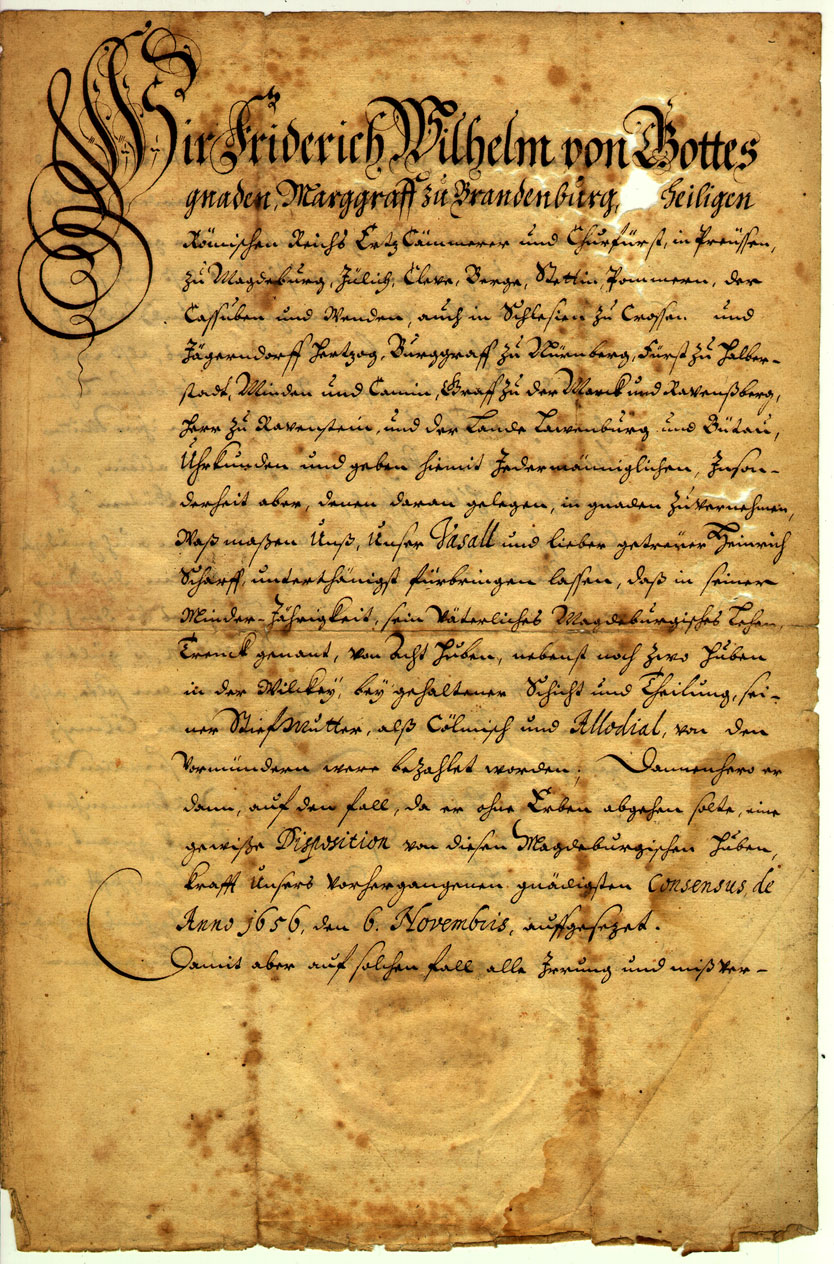 Wir Friderich Wilhelm von Gottes
gnaden, Marggraff zu Brandenburg, heiligen
Römischen Reichs Ertz Cämmerer und Churfürst, in Preüssen,
zu Magdeburg, Jülich, Cleve, Berge, Stettin, Pommern, der
Cassuben und Wenden, auch in Schlesien zu Crossen und
Jägerndorff Hertzog, Burggraff zu Nürnberg, Fürst zu Halber-
stadt, Minden und Camin, Graff zu der Marck und Ravenßberg,
Herr zu Ravenstein, und der Lande Lawenburg und Bütau,
Uhrkunden und geben hiemit Jedermänniglichen, Inson-
derheit aber, denen daran gelegen, in gnaden zuvernehmen,
Waß maßen Unß, Unser Vasall und lieber getreüer Heinrich
Scharff, unterthänigst fürbringen lassen, daß in seiner
Minder-Jährigkeit, sein väterliches Magdeburgisches Lehen,
Trenck genant, von Acht Huben, nebenst noch zwo Huben
in der Wilckey, bey gehaltener Schicht und Theilung, sei-
ner Stiefmutter, alß Cölmisch und Allodial, von den
Vormündern were bezahlet worden; Dannenhero er
dann, auf den fall, da er ohne Erben abgehen solte, eine
gewiße Disposition von diesen Magdeburgischen Huben,
krafft Unsers vorhergangenen gnädigsten Consensus, de
Anno 1656, den 6. Novembris, auffgesezet.
Damit aber auf solchen fall alle Irrung und mißver-